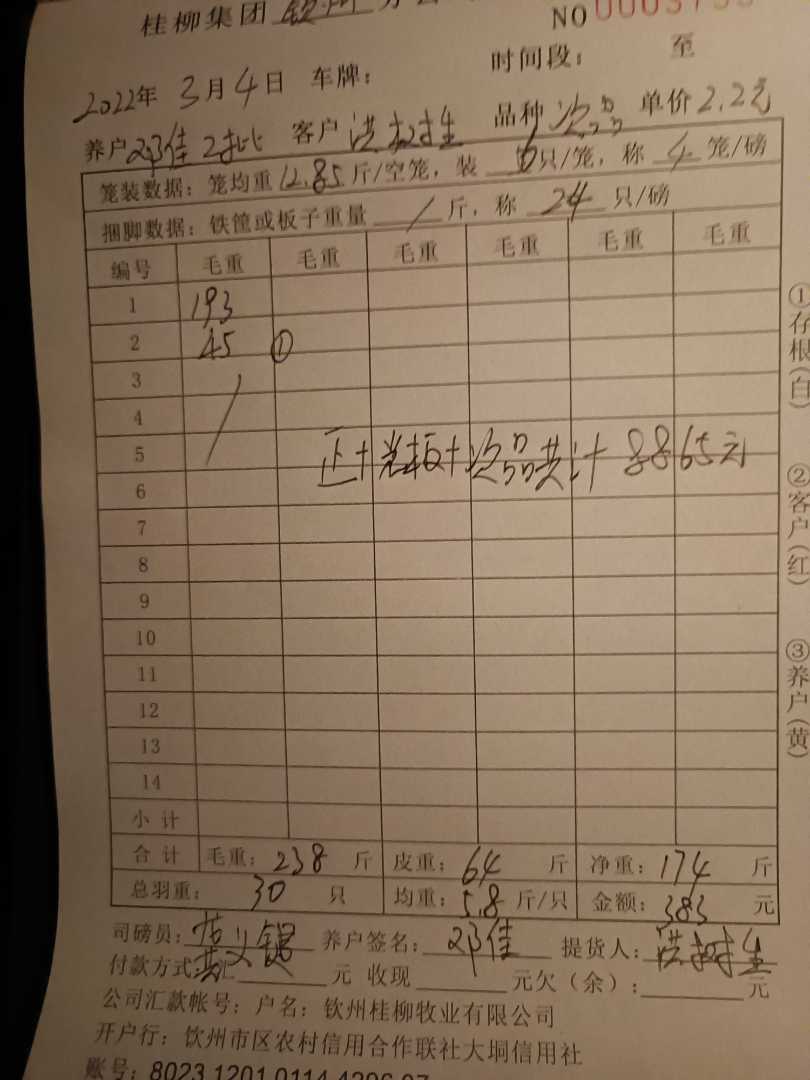 桂柳集团 钦州 分公
NO 0003793
2022年 3月4日 车牌： 时间段： 至
养户 邓佳2批 客户 洪树生 品种 次品 单价 2.2元
笼装数据：笼均重 12.85 斤/空笼，装 6 只/笼，称 4 笼/磅
捆脚数据：铁筐或板子重量 / 斤，称 24 只/磅
编号 毛重 毛重 毛重 毛重 毛重 毛重
1 193
2 45 ①
3
4
5
正+光板+次品共计 8865元
6
7
8
9
10
11
12
13
14
小计
合计 毛重：238 斤 皮重：64 斤 净重：174 斤
总羽重：30 只 均重：5.8 斤/只 金额：383 元
司磅员： 养户签名：邓佳 提货人：洪树生
付款方式：汇 元 收现 元欠（余）： 元
公司汇款帐号：户名：钦州桂柳牧业有限公司
开户行：钦州市区农村信用合作联社大垌信用社
账号：8023 1201 0114
①存根(白)
②客户(红)
③养户(黄)